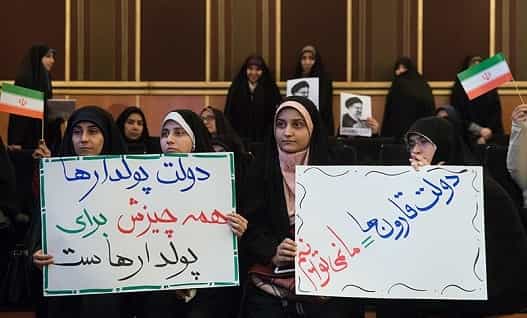 دولت پولدارها
همه چیزش برای
پولدارهاست
دولت قارون ها
ما نمی توانیم